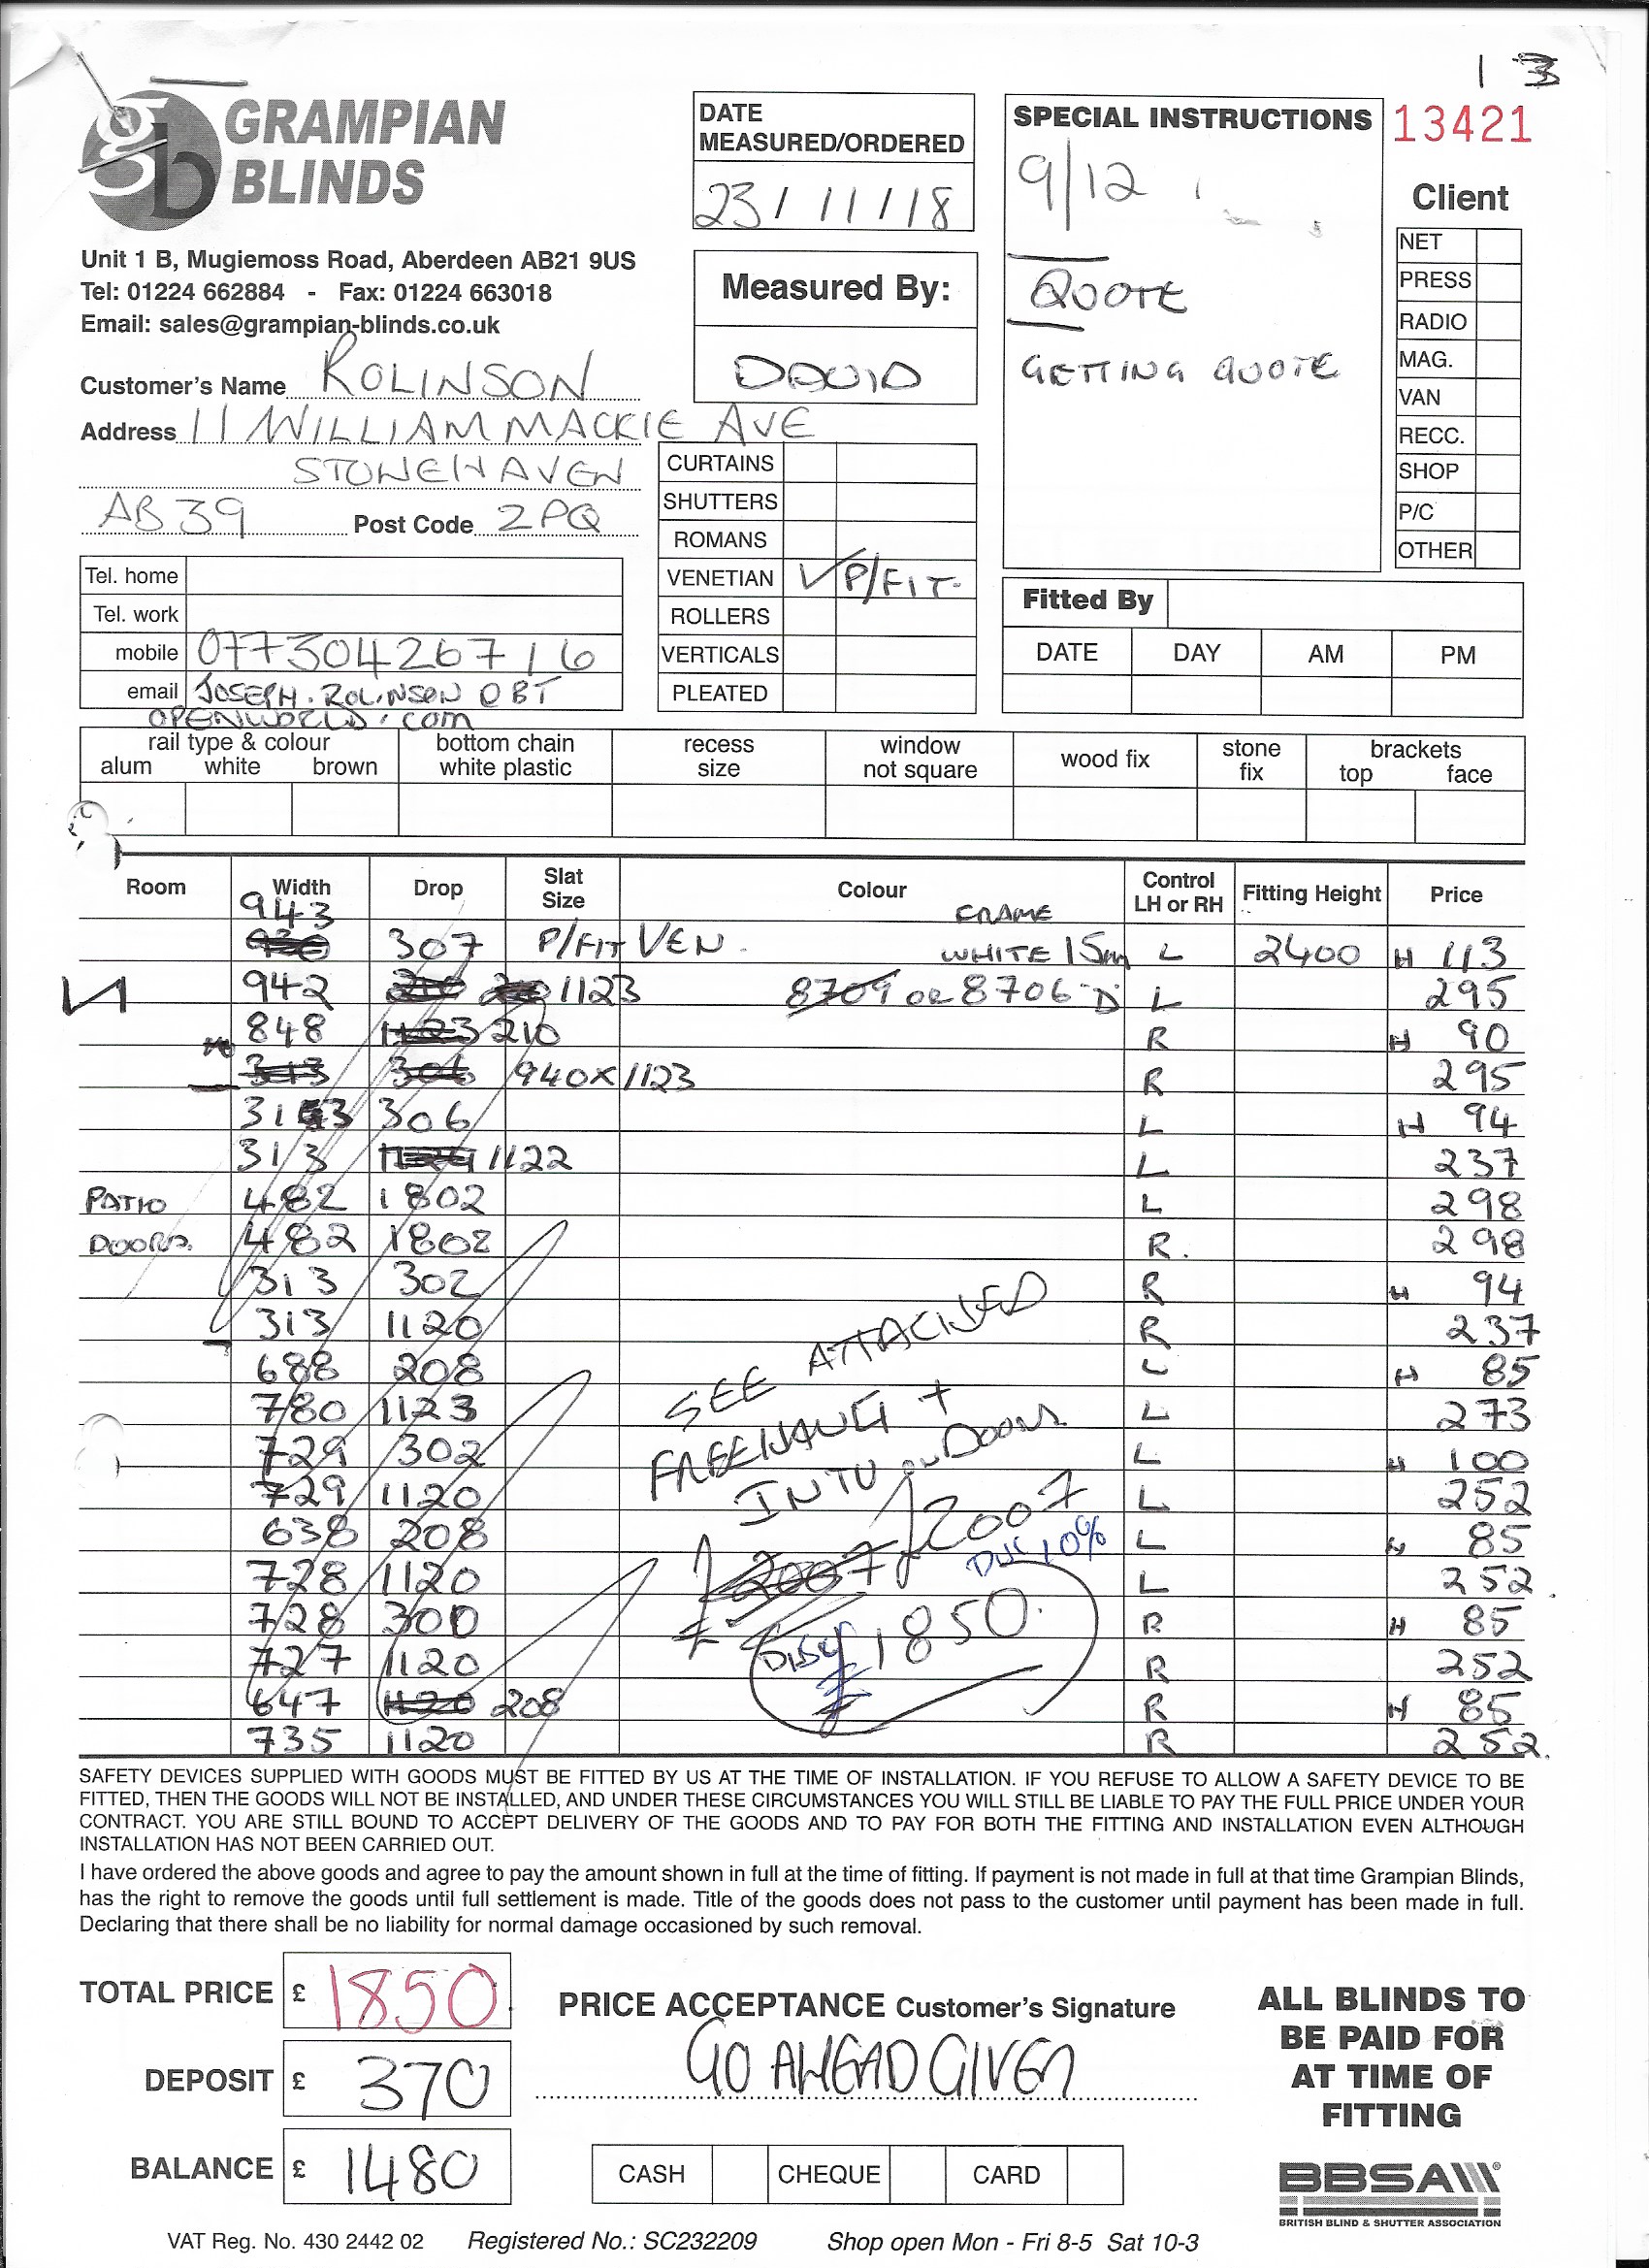 1 3
GRAMPIAN
BLINDS
Unit 1 B, Mugiemoss Road, Aberdeen AB21 9US
Tel: 01224 662884 - Fax: 01224 663018
Email: sales@grampian-blinds.co.uk
DATE
MEASURED/ORDERED
23/11/18
Measured By:
DAVID
SPECIAL INSTRUCTIONS
9/12
QUOTE
GETTING QUOTE
13421
Client
NET
PRESS
RADIO
MAG.
VAN
RECC.
SHOP
P/C
OTHER
Customer's Name ROLINSON
Address 11 WILLIAM MACKIE AVE
STONEHAVEN
AB39 Post Code 2PQ
Tel. home
Tel. work
mobile 07730426716
email JOSEPH.ROLINSON @ BT
OPENWORLD.COM
CURTAINS
SHUTTERS
ROMANS
VENETIAN ✓ P/FIT.
ROLLERS
VERTICALS
PLEATED
Fitted By
DATE DAY AM PM
rail type & colour
alum white brown
bottom chain
white plastic
recess
size
window
not square
wood fix
stone
fix
brackets
top face
Room Width Drop Slat Size Colour Control LH or RH Fitting Height Price
943 307 P/FIT VEN. FRAME WHITE 15mm L 2400 H 113
942 1123 8709 OR 8706-D L 295
848 210 R H 90
940x1123 R 295
313 306 L H 94
313 1122 L 237
PATIO 482 1802 L 298
DOORS. 482 1802 R. 298
313 302 R H 94
313 1120 R 237
688 208 L H 85
780 1123 L 273
729 302 L H 100
729 1120 L 252
638 208 L H 85
728 1120 L 252
728 300 R H 85
727 1120 R 252
647 1120 208 R H 85
735 1120 R 252.
SEE ATTACHED
FREEHANG +
INTU ON DOORS
£2007 £2007
DISC 10%
DISC £1850.
SAFETY DEVICES SUPPLIED WITH GOODS MUST BE FITTED BY US AT THE TIME OF INSTALLATION. IF YOU REFUSE TO ALLOW A SAFETY DEVICE TO BE
FITTED, THEN THE GOODS WILL NOT BE INSTALLED, AND UNDER THESE CIRCUMSTANCES YOU WILL STILL BE LIABLE TO PAY THE FULL PRICE UNDER YOUR
CONTRACT. YOU ARE STILL BOUND TO ACCEPT DELIVERY OF THE GOODS AND TO PAY FOR BOTH THE FITTING AND INSTALLATION EVEN ALTHOUGH
INSTALLATION HAS NOT BEEN CARRIED OUT.
I have ordered the above goods and agree to pay the amount shown in full at the time of fitting. If payment is not made in full at that time Grampian Blinds,
has the right to remove the goods until full settlement is made. Title of the goods does not pass to the customer until payment has been made in full.
Declaring that there shall be no liability for normal damage occasioned by such removal.
TOTAL PRICE £ 1850.
DEPOSIT £ 370
BALANCE £ 1480
PRICE ACCEPTANCE Customer's Signature
GO AHEAD GIVEN
CASH CHEQUE CARD
ALL BLINDS TO
BE PAID FOR
AT TIME OF
FITTING
BBSA
BRITISH BLIND & SHUTTER ASSOCIATION
VAT Reg. No. 430 2442 02 Registered No.: SC232209 Shop open Mon - Fri 8-5 Sat 10-3